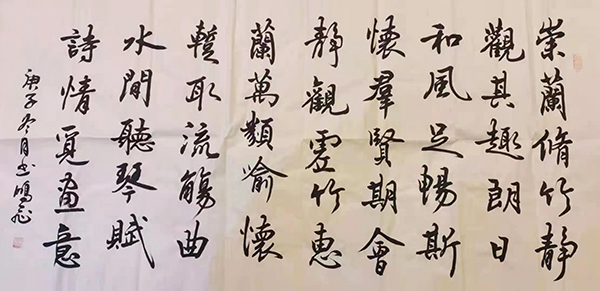 崇蘭脩竹靜
觀其趣朗日
和風足暢斯
懷羣賢期會
靜觀虛竹惠
蘭萬類喻懷
暫取流觴曲
水間聽琴賦
詩情覓畫意
庚子冬月書鴻飛